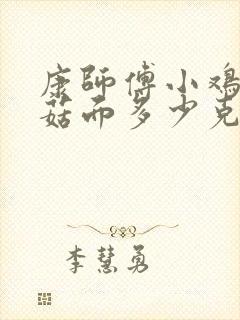 康師傅小鸡
菇面多少克
李慧勇